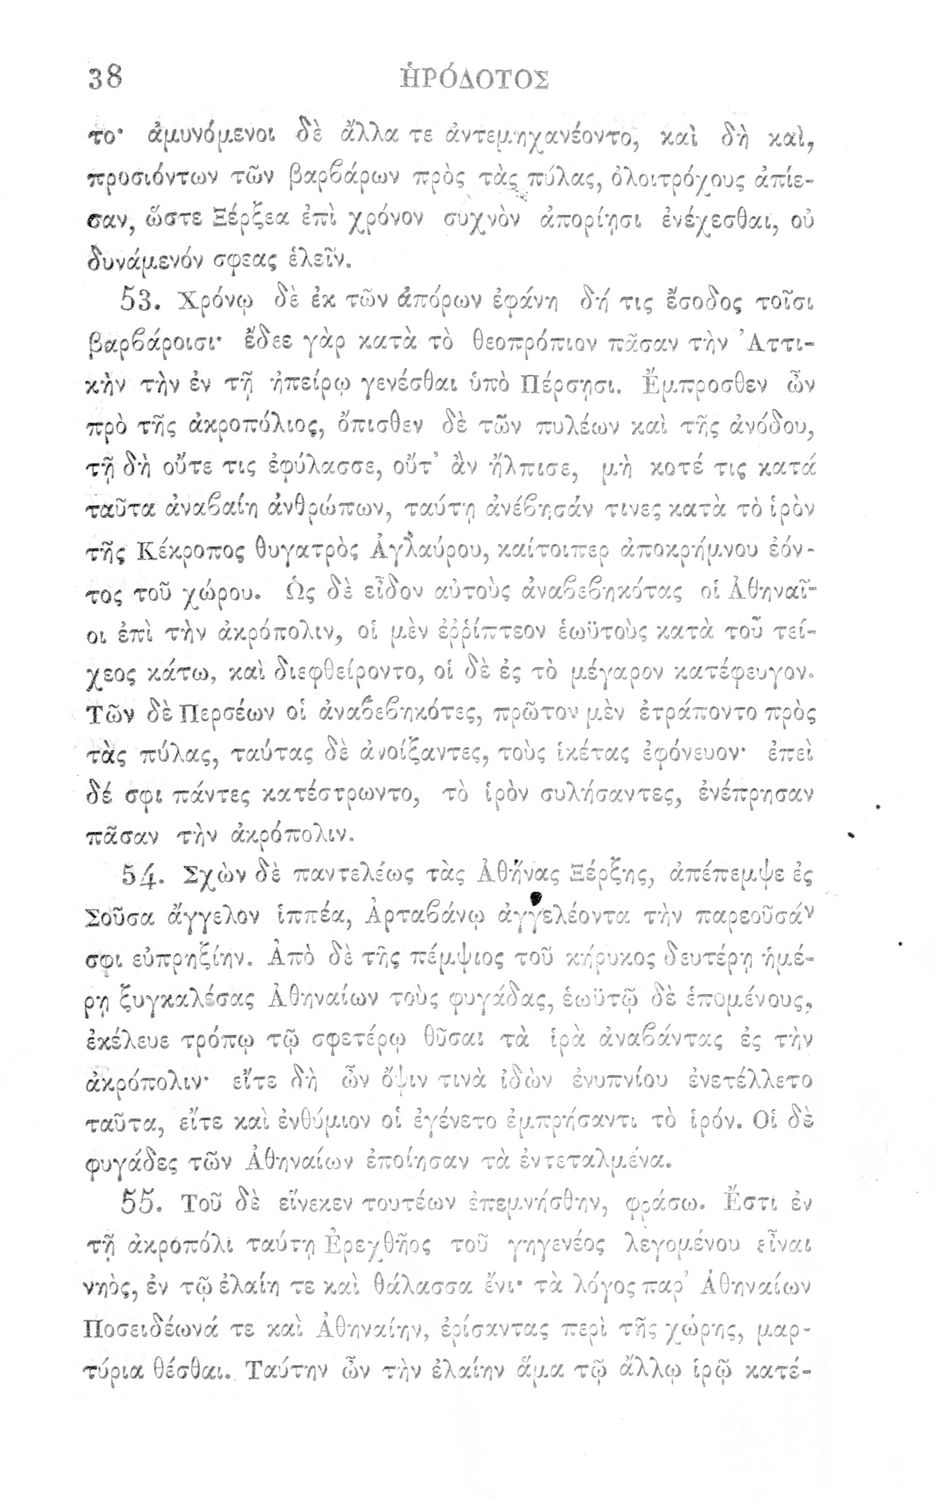 38 ἩΡΟΔΟΤΟΣ
το· ἀμυνόμενοι δὲ ἄλλα τε ἀντεμηχανέοντο, καὶ δὴ καὶ,
προσιόντων τῶν βαρϐάρων πρὸς τὰς πύλας, ὀλοιτρόχους ἀπίε-
σαν, ὥστε Ξέρξεα ἐπὶ χρόνον συχνὸν ἀπορίῃσι ἐνέχεσθαι, οὐ
δυνάμενόν σφεας ἑλεῖν.
53. Χρόνῳ δὲ ἐκ τῶν ἀπόρων ἐφάνη δή τις ἔσοδος τοῖσι
βαρϐάροισι· ἔδεε γὰρ κατὰ τὸ θεοπρόπιον πᾶσαν τὴν Ἀττι-
κὴν τὴν ἐν τῇ ἠπείρῳ γενέσθαι ὑπὸ Πέρσῃσι. Ἔμπροσθεν ὦν
πρὸ τῆς ἀκροπόλιος, ὄπισθεν δὲ τῶν πυλέων καὶ τῆς ἀνόδου,
τῇ δὴ οὔτε τις ἐφύλασσε, οὔτ’ ἂν ἤλπισε, μὴ κοτέ τις κατὰ
ταῦτα ἀναϐαίη ἀνθρώπων, ταύτῃ ἀνέϐησάν τινες κατὰ τὸ ἱρὸν
τῆς Κέκροπος θυγατρὸς Ἀγλαύρου, καίτοιπερ ἀποκρήμνου ἐόν-
τος τοῦ χώρου. Ὡς δὲ εἶδον αὐτοὺς ἀναϐεϐηκότας οἱ Ἀθηναῖ-
οι ἐπὶ τὴν ἀκρόπολιν, οἱ μὲν ἐῤῥίπτεον ἑωϋτοὺς κατὰ τοῦ τεί-
χεος κάτω, καὶ διεφθείροντο, οἱ δὲ ἐς τὸ μέγαρον κατέφευγον.
Τῶν δὲ Περσέων οἱ ἀναϐεϐηκότες, πρῶτον μὲν ἐτράποντο πρὸς
τὰς πύλας, ταύτας δὲ ἀνοίξαντες, τοὺς ἱκέτας ἐφόνευον· ἐπεὶ
δέ σφι πάντες κατέστρωντο, τὸ ἱρὸν συλήσαντες, ἐνέπρησαν
πᾶσαν τὴν ἀκρόπολιν.
54. Σχὼν δὲ παντελέως τὰς Ἀθήνας Ξέρξης, ἀπέπεμψε ἐς
Σοῦσα ἄγγελον ἱππέα, Ἀρταϐάνῳ ἀγγελέοντα τὴν παρεοῦσάν
σφι εὐπρηξίην. Ἀπὸ δὲ τῆς πέμψιος τοῦ κήρυκος δευτέρῃ ἡμέ-
ρῃ ξυγκαλέσας Ἀθηναίων τοὺς φυγάδας, ἑωϋτῷ δὲ ἑπομένους,
ἐκέλευε τρόπῳ τῷ σφετέρῳ θῦσαι τὰ ἱρὰ ἀναϐάντας ἐς τὴν
ἀκρόπολιν· εἴτε δὴ ὦν ὄψιν τινὰ ἰδὼν ἐνυπνίου ἐνετέλλετο
ταῦτα, εἴτε καὶ ἐνθύμιον οἱ ἐγένετο ἐμπρήσαντι τὸ ἱρόν. Οἱ δὲ
φυγάδες τῶν Ἀθηναίων ἐποίησαν τὰ ἐντεταλμένα.
55. Τοῦ δὲ εἵνεκεν τουτέων ἐπεμνήσθην, φράσω. Ἔστι ἐν
τῇ ἀκροπόλι ταύτῃ Ἐρεχθῆος τοῦ γηγενέος λεγομένου εἶναι
νηὸς, ἐν τῷ ἐλαίη τε καὶ θάλασσα ἔνι· τὰ λόγος παρ’ Ἀθηναίων
Ποσειδέωνά τε καὶ Ἀθηναίην, ἐρίσαντας περὶ τῆς χώρης, μαρ-
τύρια θέσθαι. Ταύτην ὦν τὴν ἐλαίην ἅμα τῷ ἄλλῳ ἱρῷ κατέ-